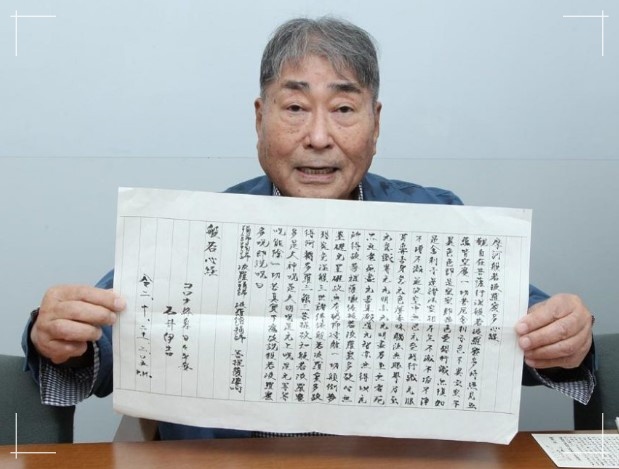 摩訶般若波羅蜜多心経
観自在菩薩行深般若波羅蜜多時照見五
蘊皆空度一切苦厄舎利子色不異空空不
異色色即是空空即是色受想行識亦復如
是舎利子是諸法空相不生不滅不垢不浄
不増不減是故空中无色无受想行識无眼
耳鼻舌身意无色声香味触法无眼界乃至
无意識界无无明亦无无明尽乃至无老死
亦无老死尽无苦集滅道无智亦无得以无
所得故菩提薩埵依般若波羅蜜多故心无
罣礙无罣礙故无有恐怖遠離一切顛倒夢
想究竟涅槃三世諸仏依般若波羅蜜多故
得阿耨多羅三藐三菩提故知般若波羅蜜
多是大神呪是大明呪是无上呪是无等等
呪能除一切苦真実不虚故説般若波羅蜜
多呪即説呪曰
羯諦羯諦 波羅羯諦 波羅僧羯諦 菩提薩婆訶
般若心経
コロナ終息
石井伊吉
令二